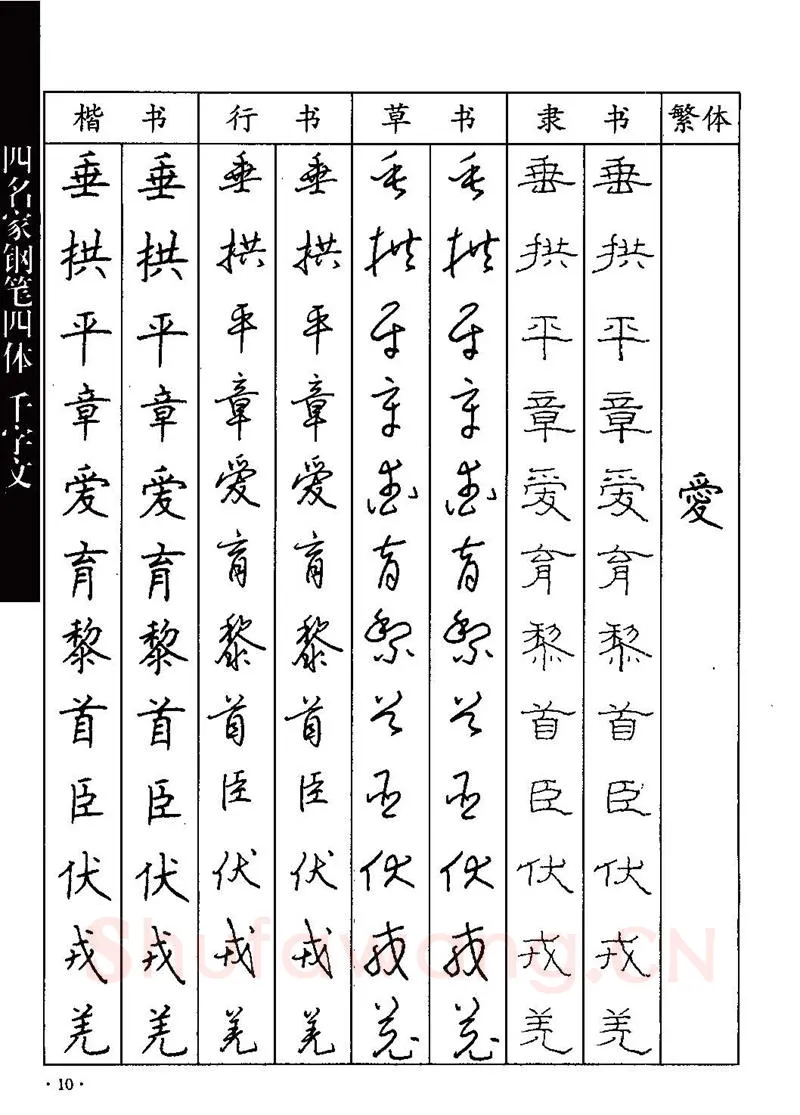 四名家钢笔四体 千字文
楷书 行书 草书 隶书 繁体
垂 垂 垂 垂 垂 垂 垂 垂
拱 拱 拱 拱 拱 拱 拱 拱
平 平 平 平 平 平 平 平
章 章 章 章 章 章 章 章
爱 爱 爱 爱 爱 爱 爱 爱 愛
育 育 育 育 育 育 育 育
黎 黎 黎 黎 黎 黎 黎 黎
首 首 首 首 首 首 首 首
臣 臣 臣 臣 臣 臣 臣 臣
伏 伏 伏 伏 伏 伏 伏 伏
戎 戎 戎 戎 戎 戎 戎 戎
羌 羌 羌 羌 羌 羌 羌 羌
Shufawang.CN
·10·